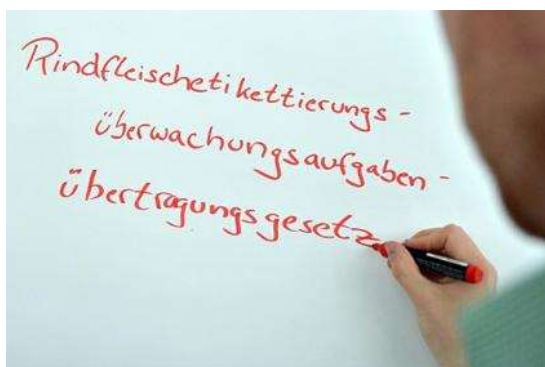 Rindfleischetikettierungs-
überwachungsaufgaben-
übertragungsgesetz